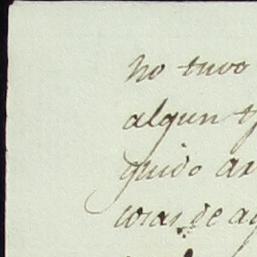 no tuvo
algun
guido
cosas de